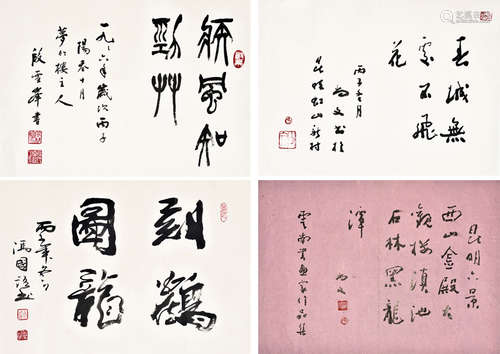 疾風知
勁草
一九九六年歲次丙子
陽春十月
夢仁樓主人
殷雪峰書
春城無
處不飛
花
丙子十月
尚文書於
昆明虹山新村
刻鶴
圖龍
丙子年冬月
馮國語書
昆明六景
西山金殿大
觀樓滇池
石林黑龍
潭
尚文
雲南書畫家作品集